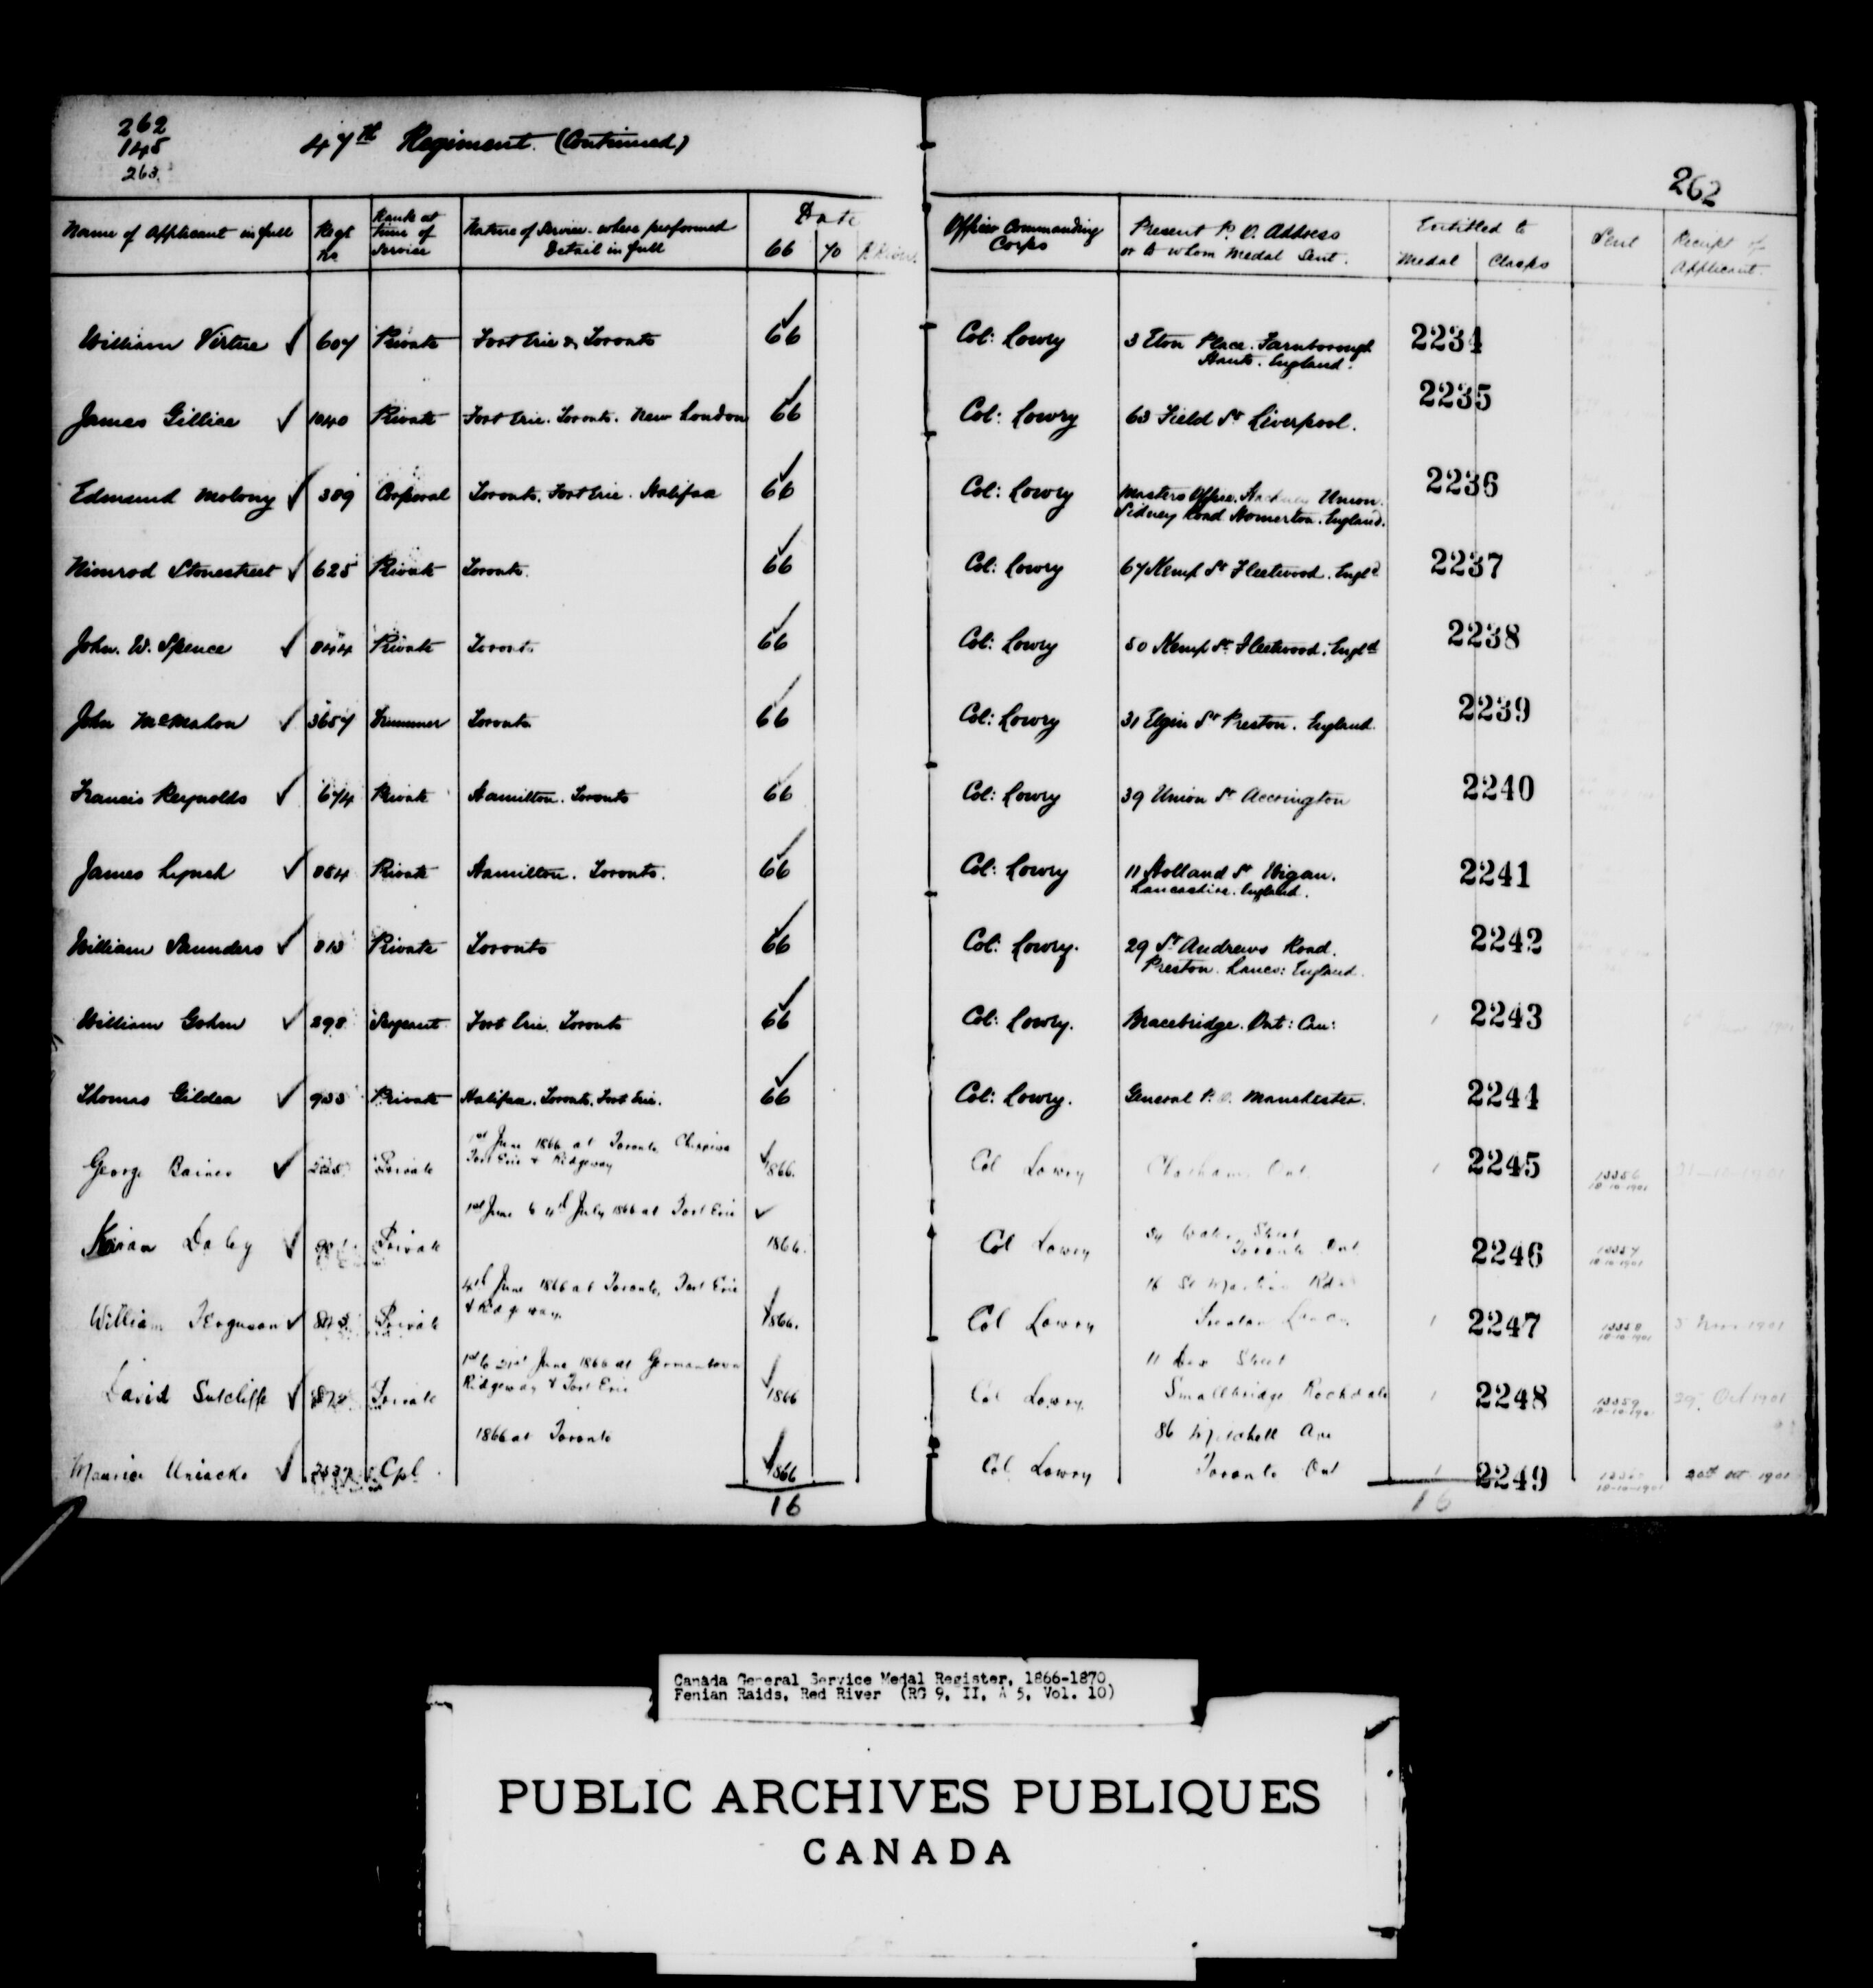 262
145
263.
47th Regiment. (Continued)
262
Name of Applicant in full | Regt No | Rank at time of Service | Nature of Service - where performed Detail in full | Date 66 | 70 | Officer Commanding Corps | Present P. O. Address or to whom Medal Sent. | Entitled to Medal | Clasps | Sent | Receipt of Applicant.
William Virtue ✓ 607 Private Fort Erie & Toronto 66 Col: Lowry 3 Eton Place. Farnborough Hants. England. 2234
James Gillice ✓ 1040 Private Fort Erie. Toronto. New London 66 Col: Lowry 63 Field St Liverpool. 2235
Edmund Molony ✓ 389 Corporal Toronto. Fort Erie. Halifax 66 Col: Lowry Masters Office. Hackney Union. Sidney Road Homerton. England. 2236
Nimrod Stonestreet ✓ 625 Private Toronto. 66 Col: Lowry 67 Kemp St Fleetwood. Engld 2237
John. W. Spence ✓ 844 Private Toronto 66 Col: Lowry 50 Kemp St Fleetwood. Engld 2238
John McMahon ✓ 3657 Drummer Toronto 66 Col: Lowry 31 Elgin St Preston. England. 2239
Francis Reynolds ✓ 674 Private Hamilton. Toronto 66 Col: Lowry 39 Union St Accrington 2240
James Lynch ✓ 884 Private Hamilton. Toronto. 66 Col: Lowry 11 Holland St Wigan. Lancashire. England. 2241
William Saunders ✓ 813 Private Toronto 66 Col: Lowry. 29 St Andrews Road. Preston. Lancs: England. 2242
William Gohm ✓ 298 Sergeant Fort Erie. Toronto 66 Col: Lowry. Bracebridge. Ont: Can: 1 2243
Thomas Gildea ✓ 933 Private Halifax. Toronto. Fort Erie. 66 Col: Lowry. General P. O. Manchester. 2244
George Baines ✓ Private 1st June 1866 at Toronto Chippiwa Fort Erie & Ridgeway 1866. Col Lowry Chatham Ont. 1 2245 13356 18-10-1901
Kiran Daley ✓ Private 1st June to 4th July 1866 at Fort Erie ✓ 1866. Col Lowry Water Street Toronto Ont 2246 13357 18-10-1901
William Ferguson ✓ Private 4th June 1866 at Toronto, Fort Erie & Ridgeway. 1866. Col Lowry 16 St Martins Rd Preston Lancs. 1 2247 13358 18-10-1901 5 Nov 1901
David Sutcliffe ✓ Private 1st to 21st June 1866 at Germantown Ridgeway & Fort Erie 1866 Col Lowry 11 Street Smallbridge Rochdale 1 2248 13359 18-10-1901 29 Oct 1901
Maurice Uniacke ✓ Cpl. 1866 at Toronto 1866 Col Lowry 86 Mitchell Ave Toronto Ont 1 2249 18-10-1901 20th Oct 1901
16
16
Canada General Service Medal Register, 1866-1870
Fenian Raids, Red River (RG 9, II, A 5, Vol. 10)
PUBLIC ARCHIVES PUBLIQUES
CANADA